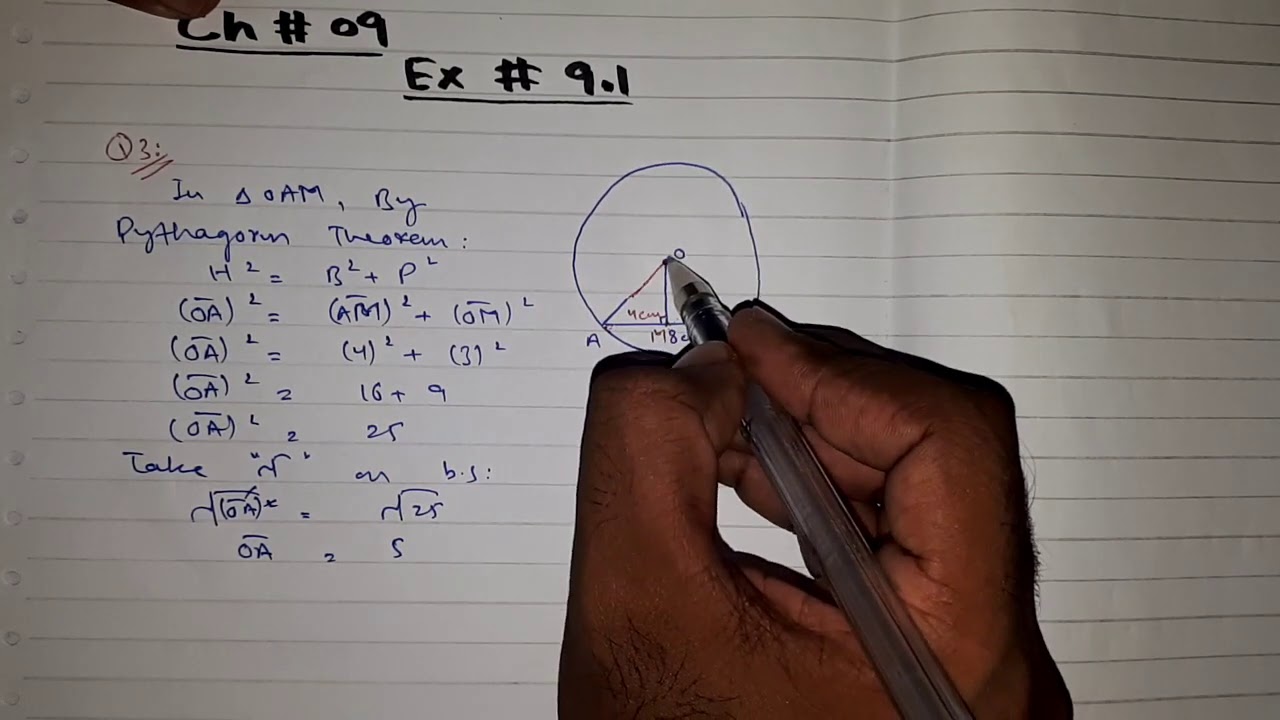 Ch # 09
Ex # 9.1
Q3:
In Δ OAM, By
Pythagorun Theorem:
H² = B² + P²
(OA)² = (AM)² + (OM)²
(OA)² = (4)² + (3)²
(OA)² = 16 + 9
(OA)² = 25
Take "√" on b.s:
√(OA)² = √25
OA = 5
O
4cm
A M 8c